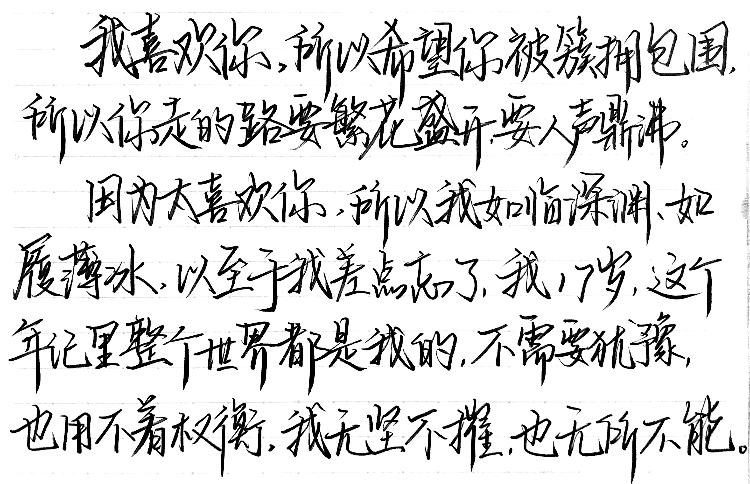 我喜欢你,所以希望你被簇拥包围,
所以你走的路要繁花盛开,要人声鼎沸。
因为太喜欢你,所以我如临深渊、如
履薄冰,以至于我差点忘了,我17岁,这个
年纪里整个世界都是我的,不需要犹豫,
也用不着权衡,我无坚不摧,也无所不能。